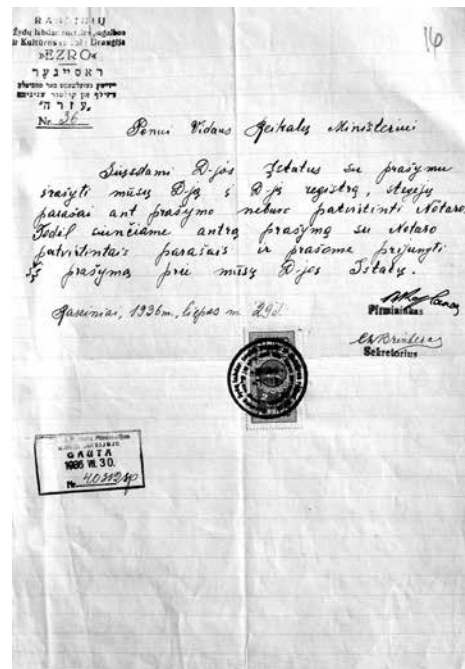 RASEINIŲ
Žydų labdar
ir Kultūros Draugija
»EZRO«
ראסיינער
עזרה
Nr. 36
16
Ponui Vidaus Reikalų Ministeriui
Siųsdami D-jos Įstatus su prašymu
įrašyti mūsų D-ją į D-jų registrą, steigėjų
parašai ant prašymo nebuvo patvirtinti Notaro.
Todėl siunčiame antrą prašymą su Notaro
patvirtintais parašais ir prašome prijungti
šį prašymą prie mūsų D-jos Įstatų.
Raseiniai, 1936 m. liepos m. 29 d.
Pirmininkas
Sekretorius
GAUTA
1936 VII. 30.
Nr. 40312